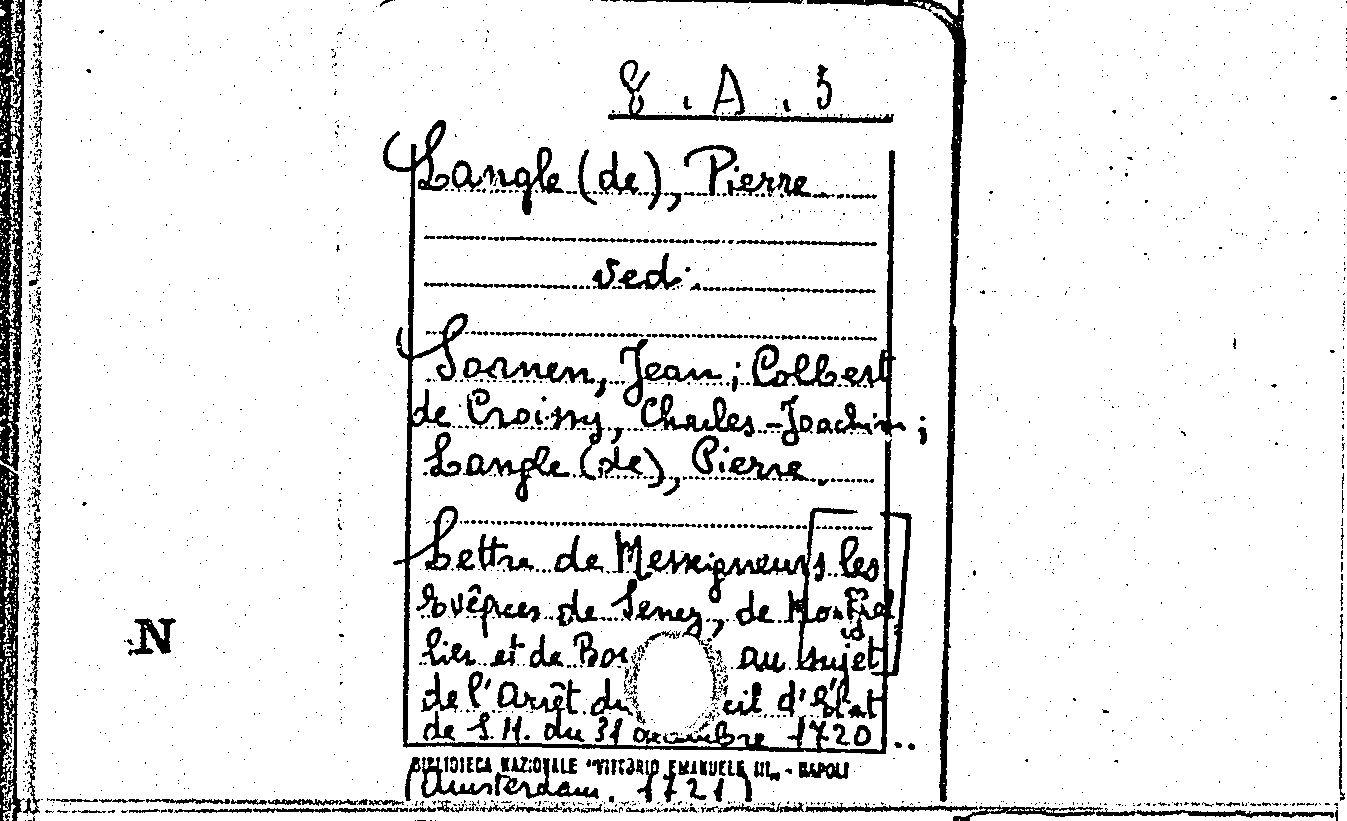 8.A.3
Langle (de), Pierre
ved.
Soanen, Jean; Colbert
de Croissy, Charles-Joachim;
Langle (de), Pierre.
Lettre de Messeigneurs les
Evêques de Senez, de Montpel
lier et de Bou au sujet
de l'Arrêt du eil d'Etat
de S.M. du 31 décembre 1720..
BIBLIOTECA NAZIONALE "VITTORIO EMANUELE III" - NAPOLI
(Amsterdam. 1721)
N